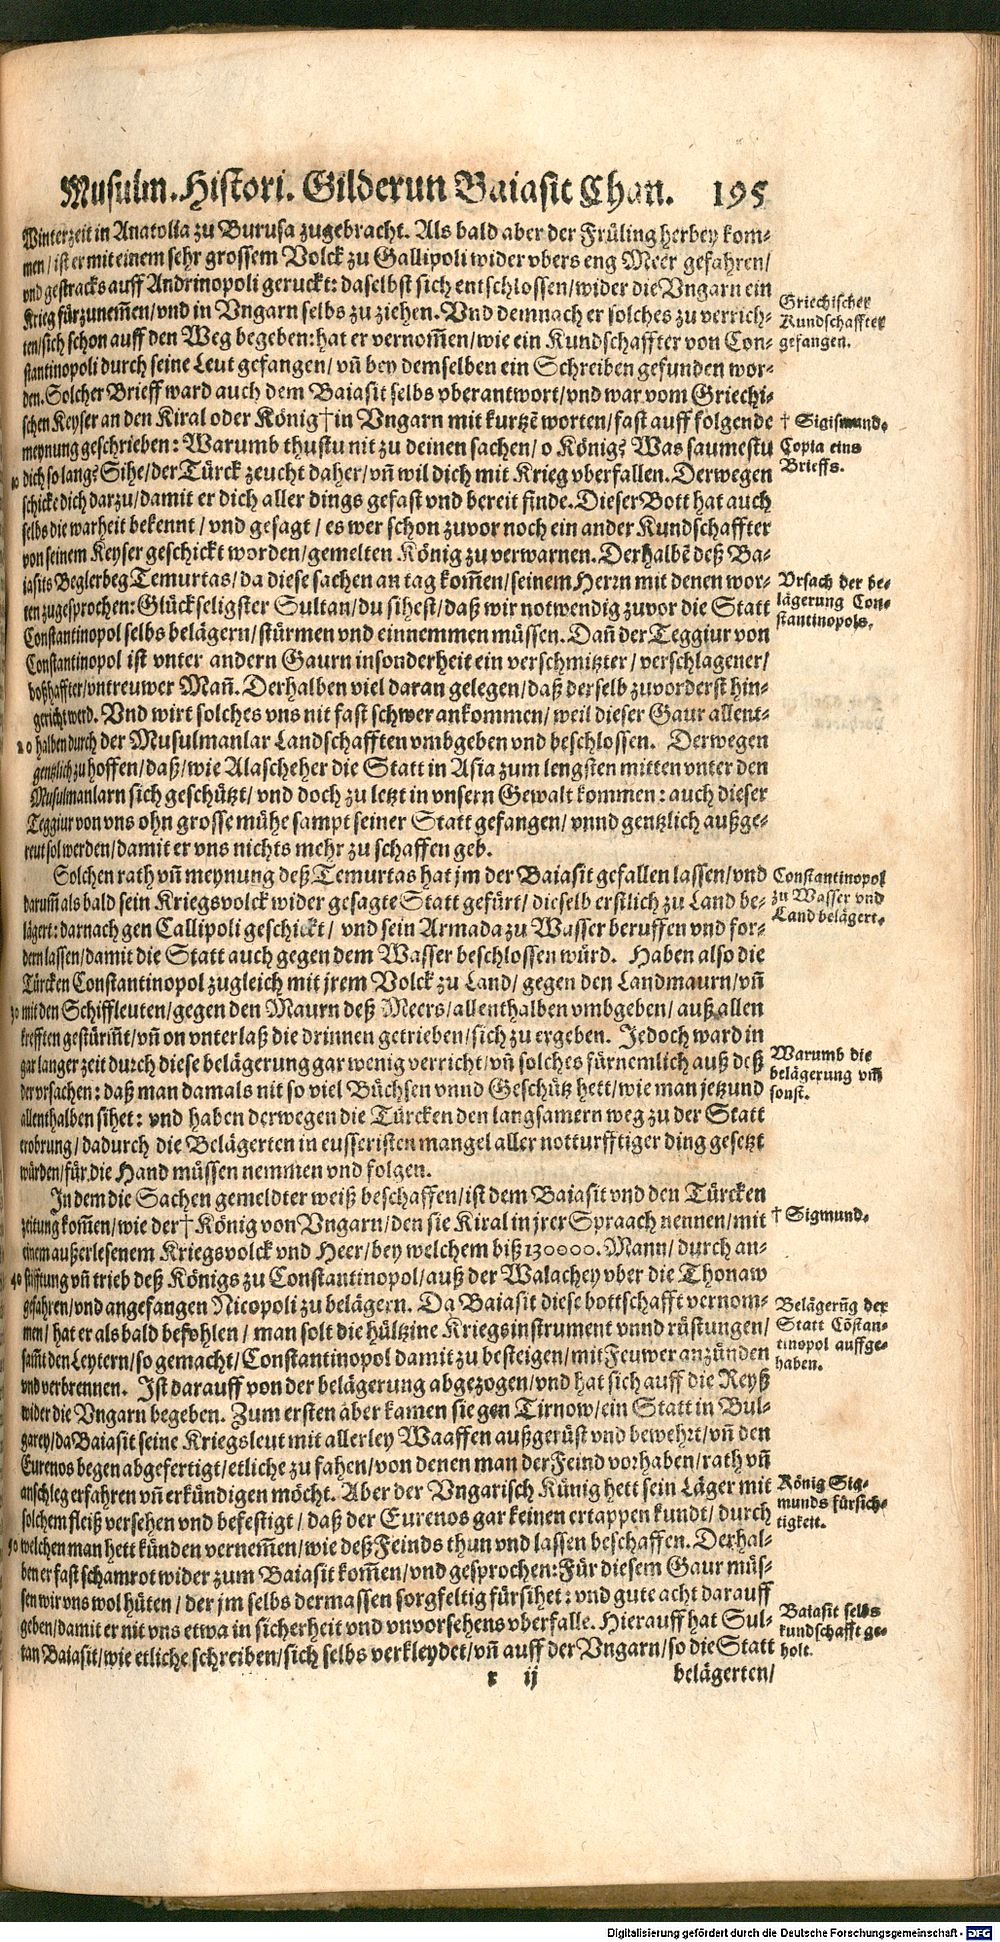 Musulm. Histori. Gilderun Baiasit Chan. 195
Winterzeit in Anatolia zu Burusa zugebracht. Als bald aber der Früling herbey kom-
men/ ist er mit einem sehr grossem Volck zu Gallipoli wider vbers eng Meer gefahren/
vnd gestracks auff Andrinopoli geruckt: daselbst sich entschlossen/ wider die Vngarn ein
Krieg fürzunem̃en/ vnd in Vngarn selbs zu ziehen. Vnd demnach er solches zu verrich-
ten/ sich schon auff den Weg begeben: hat er vernom̃en/ wie ein Kundschaffter von Con-
stantinopoli durch seine Leut gefangen/ vñ bey demselben ein Schreiben gefunden wor-
den. Solcher Brieff ward auch dem Baiasit selbs vberantwort/ vnd war vom Griechi-
schen Keyser an den Kiral oder König † in Vngarn mit kurtzẽ worten/ fast auff folgende
meynung geschrieben: Warumb thustu nit zu deinen sachen/ o König? Was saumestu
10 dich so lang? Sihe/ der Türck zeucht daher/ vñ wil dich mit Krieg vberfallen. Derwegen
schicke dich darzu/ damit er dich aller dings gefast vnd bereit finde. Dieser Bott hat auch
selbs die warheit bekennt/ vnd gesagt/ es wer schon zuvor noch ein ander Kundschaffter
von seinem Keyser geschickt worden/ gemelten König zu verwarnen. Derhalbẽ deß Ba-
iasits Beglerbeg Temurtas/ da diese sachen an tag kom̃en/ seinem Herrn mit denen wor-
ten zugesprochen: Glückseligster Sultan/ du sihest/ daß wir notwendig zuvor die Statt
Constantinopol selbs belägern/ stürmen vnd einnemmen müssen. Dañ der Teggiur von
Constantinopol ist vnter andern Gaurn insonderheit ein verschmitzter/ verschlagener/
boßhaffter/ vntreuwer Mañ. Derhalben viel daran gelegen/ daß derselb zuvorderst hin-
gericht werd. Vnd wirt solches vns nit fast schwer ankommen/ weil dieser Gaur allent-
20 halben durch der Musulmanlar Landschafften vmbgeben vnd beschlossen. Derwegen
gentzlich zu hoffen/ daß/ wie Alascheher die Statt in Asia zum lengsten mitten vnter den
Musulmanlarn sich geschützt/ vnd doch zu letzt in vnsern Gewalt kommen: auch dieser
Teggiur von vns ohn grosse mühe sampt seiner Statt gefangen/ vnnd gentzlich außge-
reut sol werden/ damit er vns nichts mehr zu schaffen geb.
Solchen rath vñ meynung deß Temurtas hat jm der Baiasit gefallen lassen/ vnd
darum̃ als bald sein Kriegsvolck wider gesagte Statt gefürt/ dieselb erstlich zu Land be-
lägert: darnach gen Callipoli geschickt/ vnd sein Armada zu Wasser beruffen vnd for-
dern lassen/ damit die Statt auch gegen dem Wasser beschlossen würd. Haben also die
Türcken Constantinopol zugleich mit jrem Volck zu Land/ gegen den Landmaurn/ vñ
30 mit den Schiffleuten/ gegen den Maurn deß Meers/ allenthalben vmbgeben/ auß allen
krefften gestürm̃t/ vñ on vnterlaß die drinnen getrieben/ sich zu ergeben. Jedoch ward in
gar langer zeit durch diese belägerung gar wenig verricht/ vñ solches fürnemlich auß deß
der vrsachen: daß man damals nit so viel Büchsen vnnd Geschütz hett/ wie man jetzund
allenthalben sihet: vnd haben derwegen die Türcken den langsamern weg zu der Statt
erobrung/ dadurch die Belägerten in eusseristen mangel aller notturfftiger ding gesetzt
würden/ für die Hand müssen nemmen vnd folgen.
In dem die Sachen gemeldter weiß beschaffen/ ist dem Baiasit vnd den Türcken
zeitung kom̃en/ wie der † König von Vngarn/ den sie Kiral in jrer Spraach nennen/ mit
einem außerlesenem Kriegsvolck vnd Heer/ bey welchem biß 130000. Mann/ durch an-
40 stifftung vñ trieb deß Königs zu Constantinopol/ auß der Walachey vber die Thonaw
gefahren/ vnd angefangen Nicopoli zu belägern. Da Baiasit diese bottschafft vernom-
men/ hat er als bald befohlen/ man solt die hültzine Kriegsinstrument vnnd rüstungen/
sam̃t den Leytern/ so gemacht/ Constantinopol damit zu besteigen/ mit Feuwer anzünden
vnd verbrennen. Ist darauff von der belägerung abgezogen/ vnd hat sich auff die Reyß
wider die Vngarn begeben. Zum ersten aber kamen sie gen Tirnow/ ein Statt in Bul-
garey/ da Baiasit seine Kriegsleut mit allerley Waaffen außgerüst vnd bewehrt/ vñ den
Eurenos begen abgefertigt/ etliche zu fahen/ von denen man der Feind vorhaben/ rath vñ
anschleg erfahren vñ erkündigen möcht. Aber der Vngarisch Künig hett sein Läger mit
solchem fleiß versehen vnd befestigt/ daß der Eurenos gar keinen ertappen kundt/ durch
50 welchen man hett künden vernem̃en/ wie deß Feinds thun vnd lassen beschaffen. Derhal-
ben er fast schamrot wider zum Baiasit kom̃en/ vnd gesprochen: Für diesem Gaur müs-
sen wir vns wol hüten/ der jm selbs dermassen sorgfeltig fürsihet: vnd gute acht darauff
geben/ damit er nit vns etwa in sicherheit vnd vnvorsehens vberfalle. Hierauff hat Sul-
tan Baiasit/ wie etliche schreiben/ sich selbs verkleydet/ vñ auff der Vngarn/ so die Statt
r ij belägerten/
Griechischer
Kundschaffter
gefangen.
† Sigismund.
Copia eins
Brieffs.
Vrsach der be-
lägerung Con-
stantinopols.
Constantinopol
zu Wasser vnd
Land belägert.
Warumb die
belägerung vm̃
sonst.
† Sigmund.
Belägerũg der
Statt Cõstan-
tinopol auffge-
haben.
König Sig-
munds fürsich-
tigkeit.
Baiasit selbs
kundschafft ge-
holt.
Digitalisierung gefördert durch die Deutsche Forschungsgemeinschaft - DFG